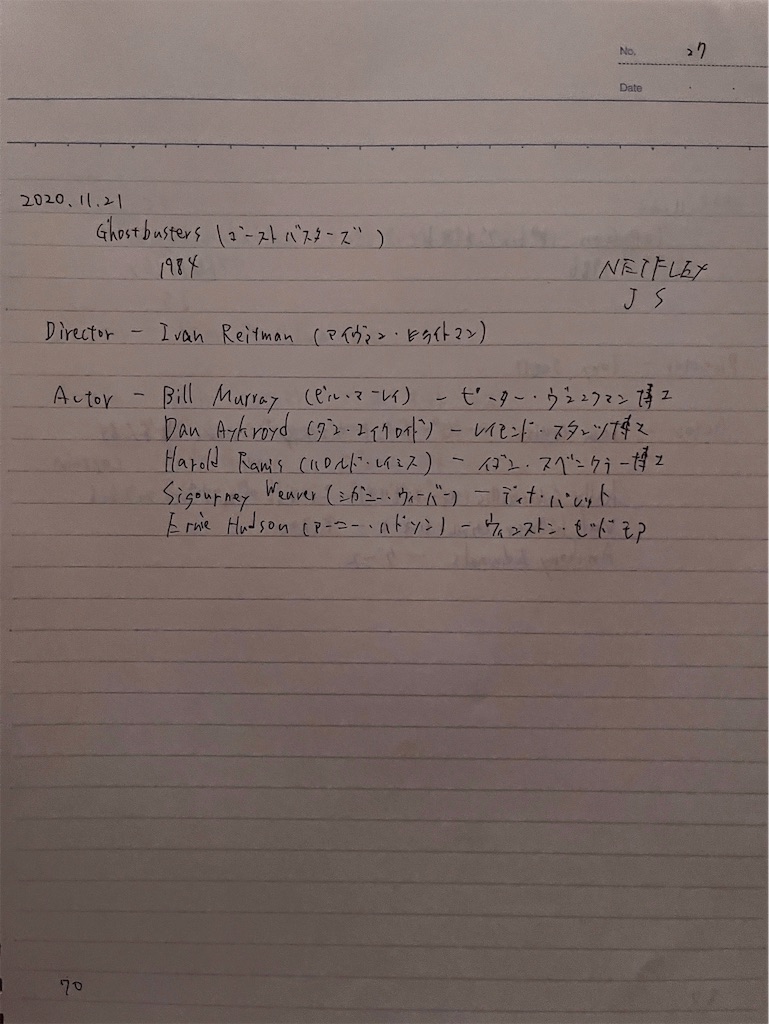 No. 27
Date
2020.11.21
Ghostbusters (ゴーストバスターズ)
1984
NETFLIX
J S
Director - Ivan Reitman (アイヴァン・ライトマン)
Actor - Bill Murray (ビル・マーレイ) - ピーター・ヴェンクマン博士
Dan Aykroyd (ダン・エイクロイド) - レイモンド・スタンツ博士
Harold Ramis (ハロルド・レイミス) - イゴン・スペングラー博士
Sigourney Weaver (シガニー・ウィーバー) - ディナ・バレット
Ernie Hudson (アーニー・ハドソン) - ウィンストン・ゼッドモア
70